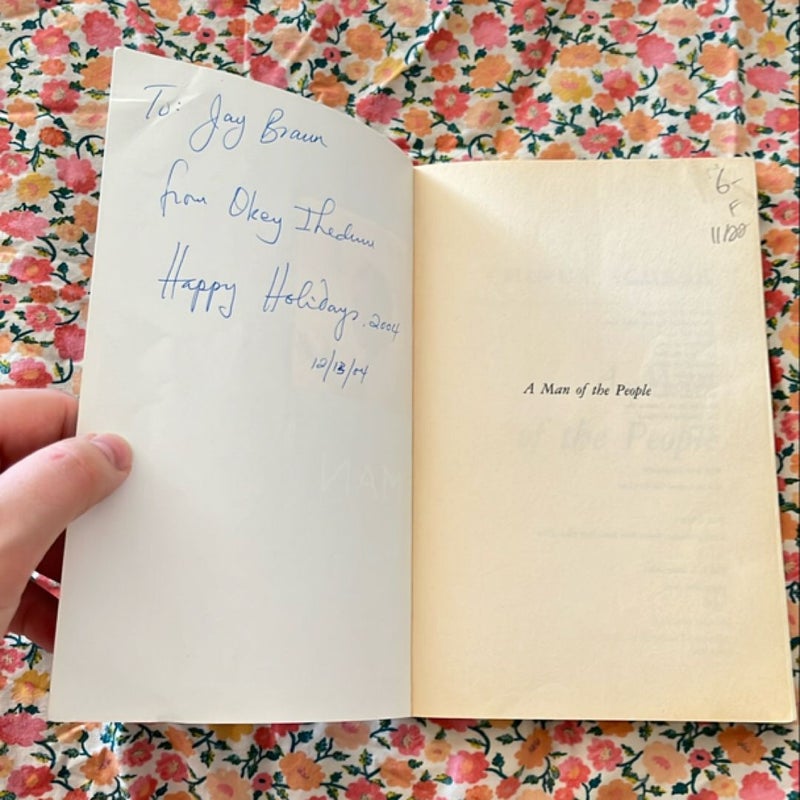 To: Jay Braun
from Okey Ihedum
Happy Holidays, 2004
12/13/04
6-
F
A Man of the People
of the People
MAN